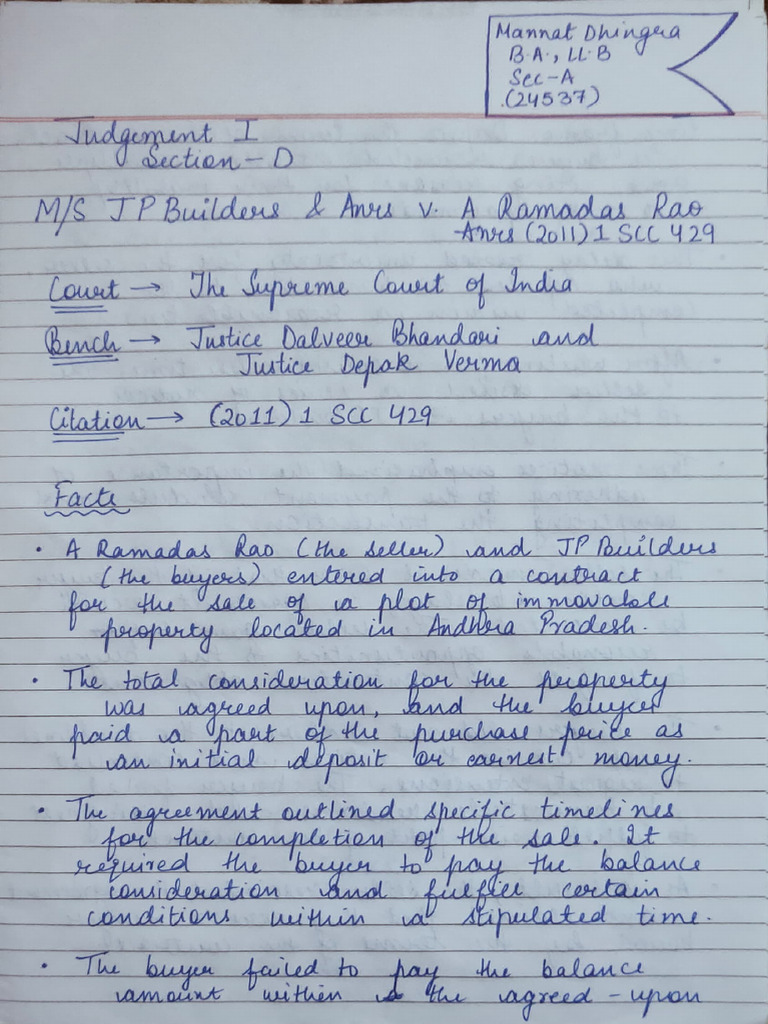 Mannat Dhingra
B.A., LL.B
Sec-A
(24537)
Judgement I
Section-D
M/S JP Builders & Anrs v. A Ramadas Rao
Anrs (2011) 1 SCC 429
Court → The Supreme Court of India
Bench → Justice Dalveer Bhandari and
Justice Depak Verma
Citation → (2011) 1 SCC 429
Facts
• A Ramadas Rao (the seller) and JP Builders
(the buyers) entered into a contract
for the sale of a plot of immovable
property located in Andhra Pradesh.
• The total consideration for the property
was agreed upon, and the buyer
paid a part of the purchase price as
an initial deposit or earnest money.
• The agreement outlined specific timelines
for the completion of the sale. It
required the buyer to pay the balance
consideration and fulfill certain
conditions within a stipulated time.
• The buyer failed to pay the balance
amount within the agreed-upon